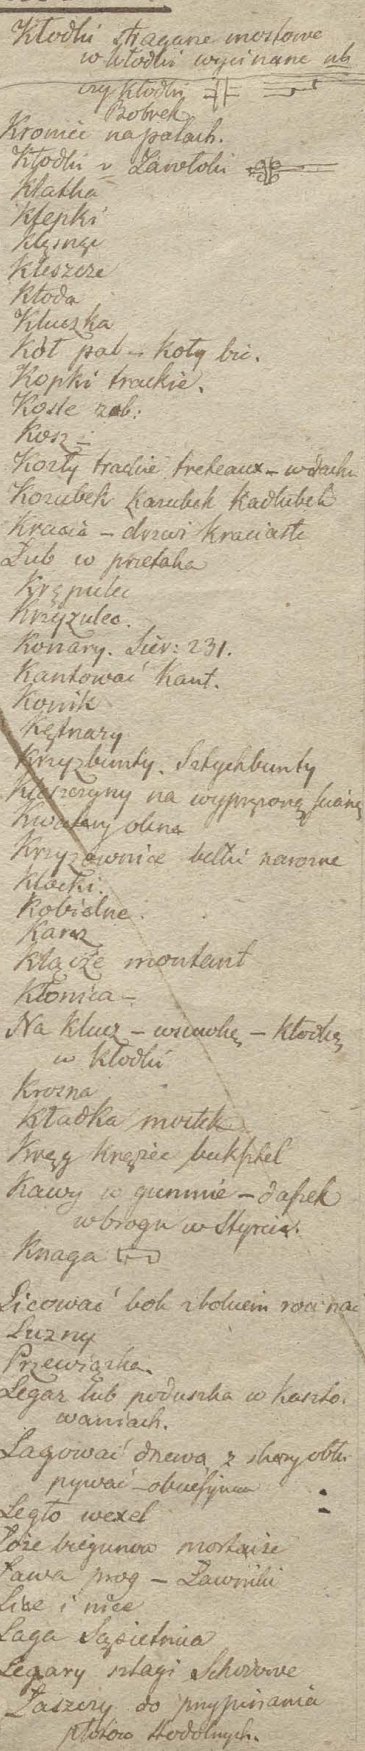 Kłodki stragane mostowe
w kłodki wycinane ub
czy kłodki
Bobrek
Kronić na palach.
Kłodki v Zawłoki
Klatka
Klepki
Klęsnąć
Kleszcze
Kłoda
Kluczka
Kół pal – koły bić.
Kopki trackie.
Kosle zob:
Kosz –
Kozły trackie treteaux – w dachu
Kozubek Kazubek Kadłubek
Kracia – drzwi kraciaste
Lub w przetaka
Krępulec
Krzyzulec.
Konary. Sier: 231.
Kantować kant.
Konik
Kętnary
Krzyzbunty. Sztychbunty
na wyprężoną ścianę
Kwatery okna
Krzyzownice belki narozne
Klocki.
Kobielne.
Karcz
Kłącze montant
Kłonica –
Na klucz – wsuwkę – kłodkę
w kłodki
Krosna
Kładka mostek
Kręg Kręzec
Kawy w gumnie – dasek
w brogu w Stryciu.
Knaga
Licować bok z bokiem rownać
Luzny
Przewiązka.
Legar lub poduszka w kaszto.
waniach.
Lagować drzewa z skory obłu
pywać –
Legło wexel
Loże biegunow mortaise
Ława prog – Ławniki
Lice i nice
Laga Sąsietnica
Legary sztagi
Łaszczry do przypinania
płotów stodolnych.